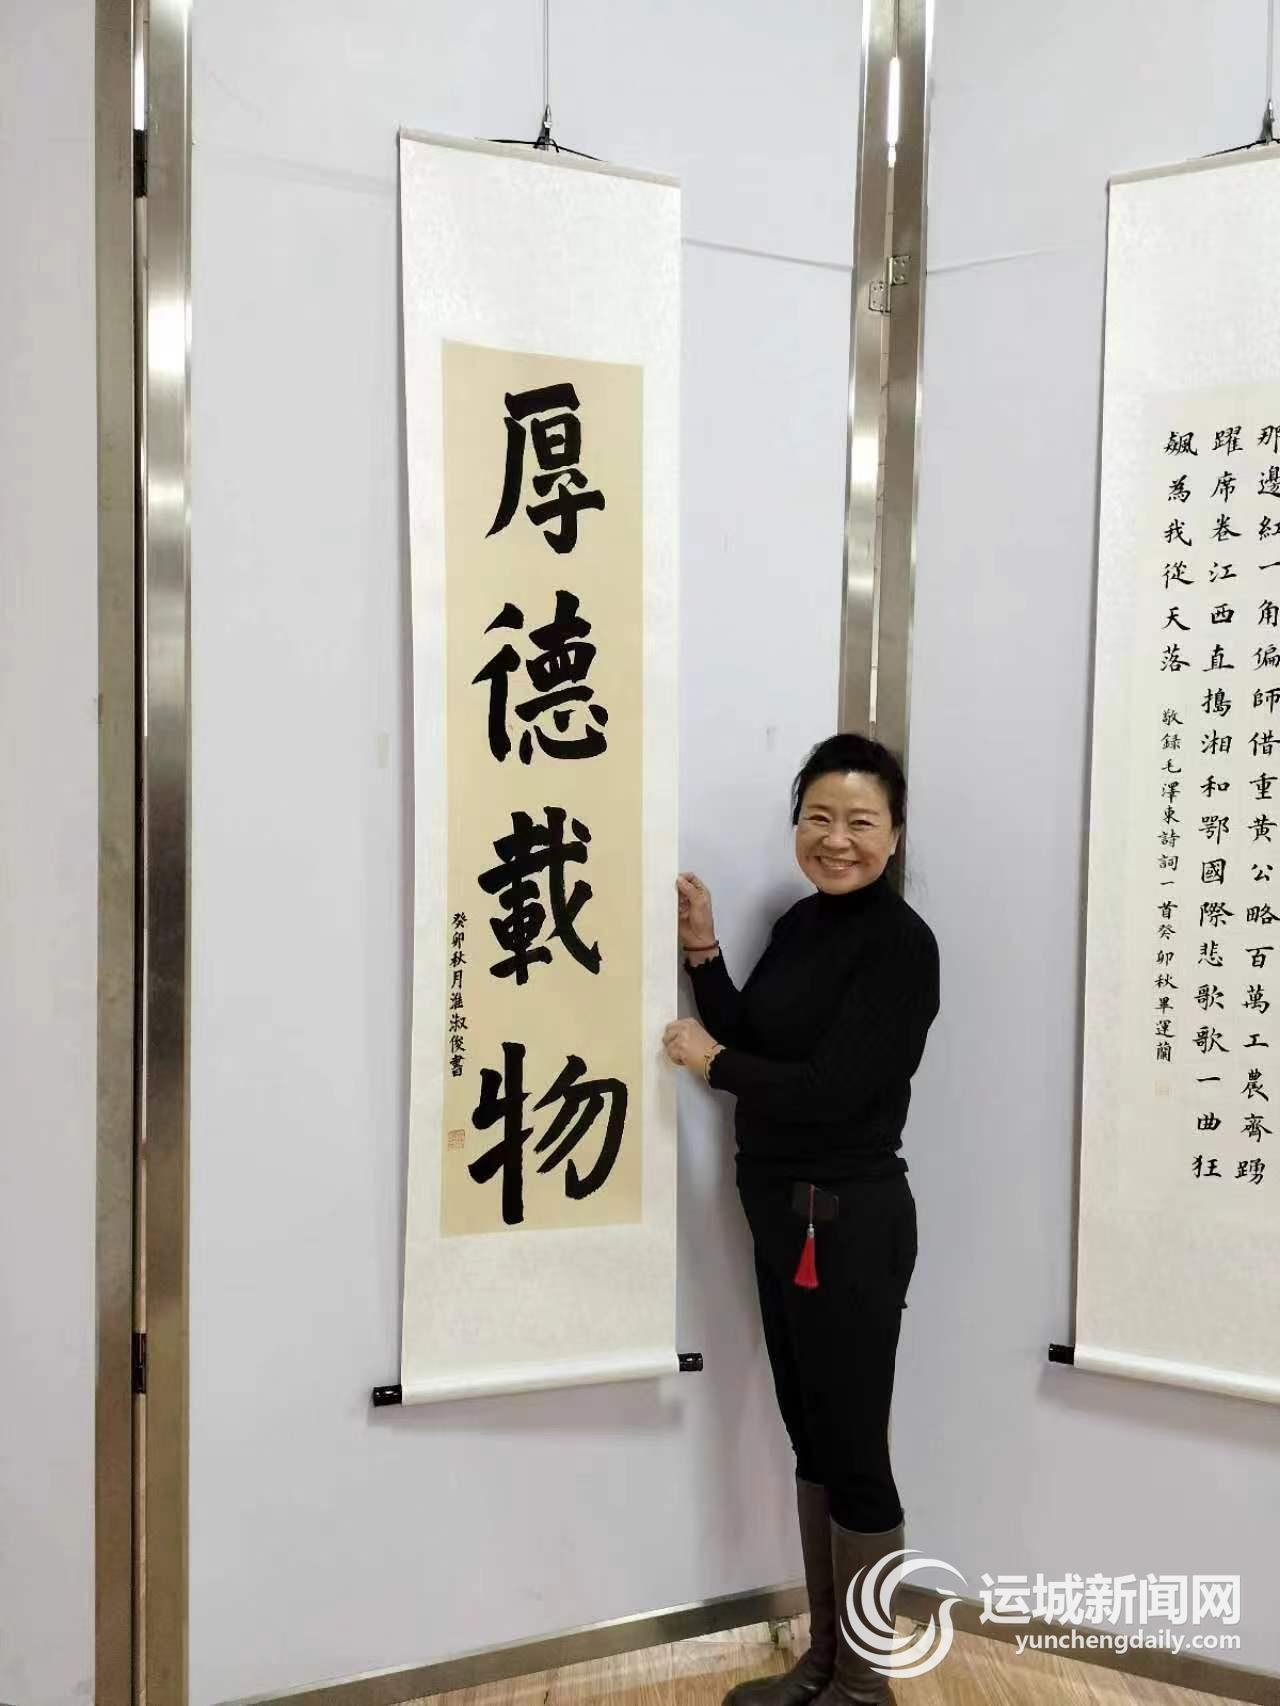 厚德載物
癸卯秋月淮淑俊書
那邊紅一角偏師借重黄公略百萬工農齊踴
躍席卷江西直搗湘和鄂國際悲歌歌一曲狂
飆為我從天落
敬録毛澤東詩詞一首癸卯秋畢運蘭
运城新闻网
yunchengdaily.com